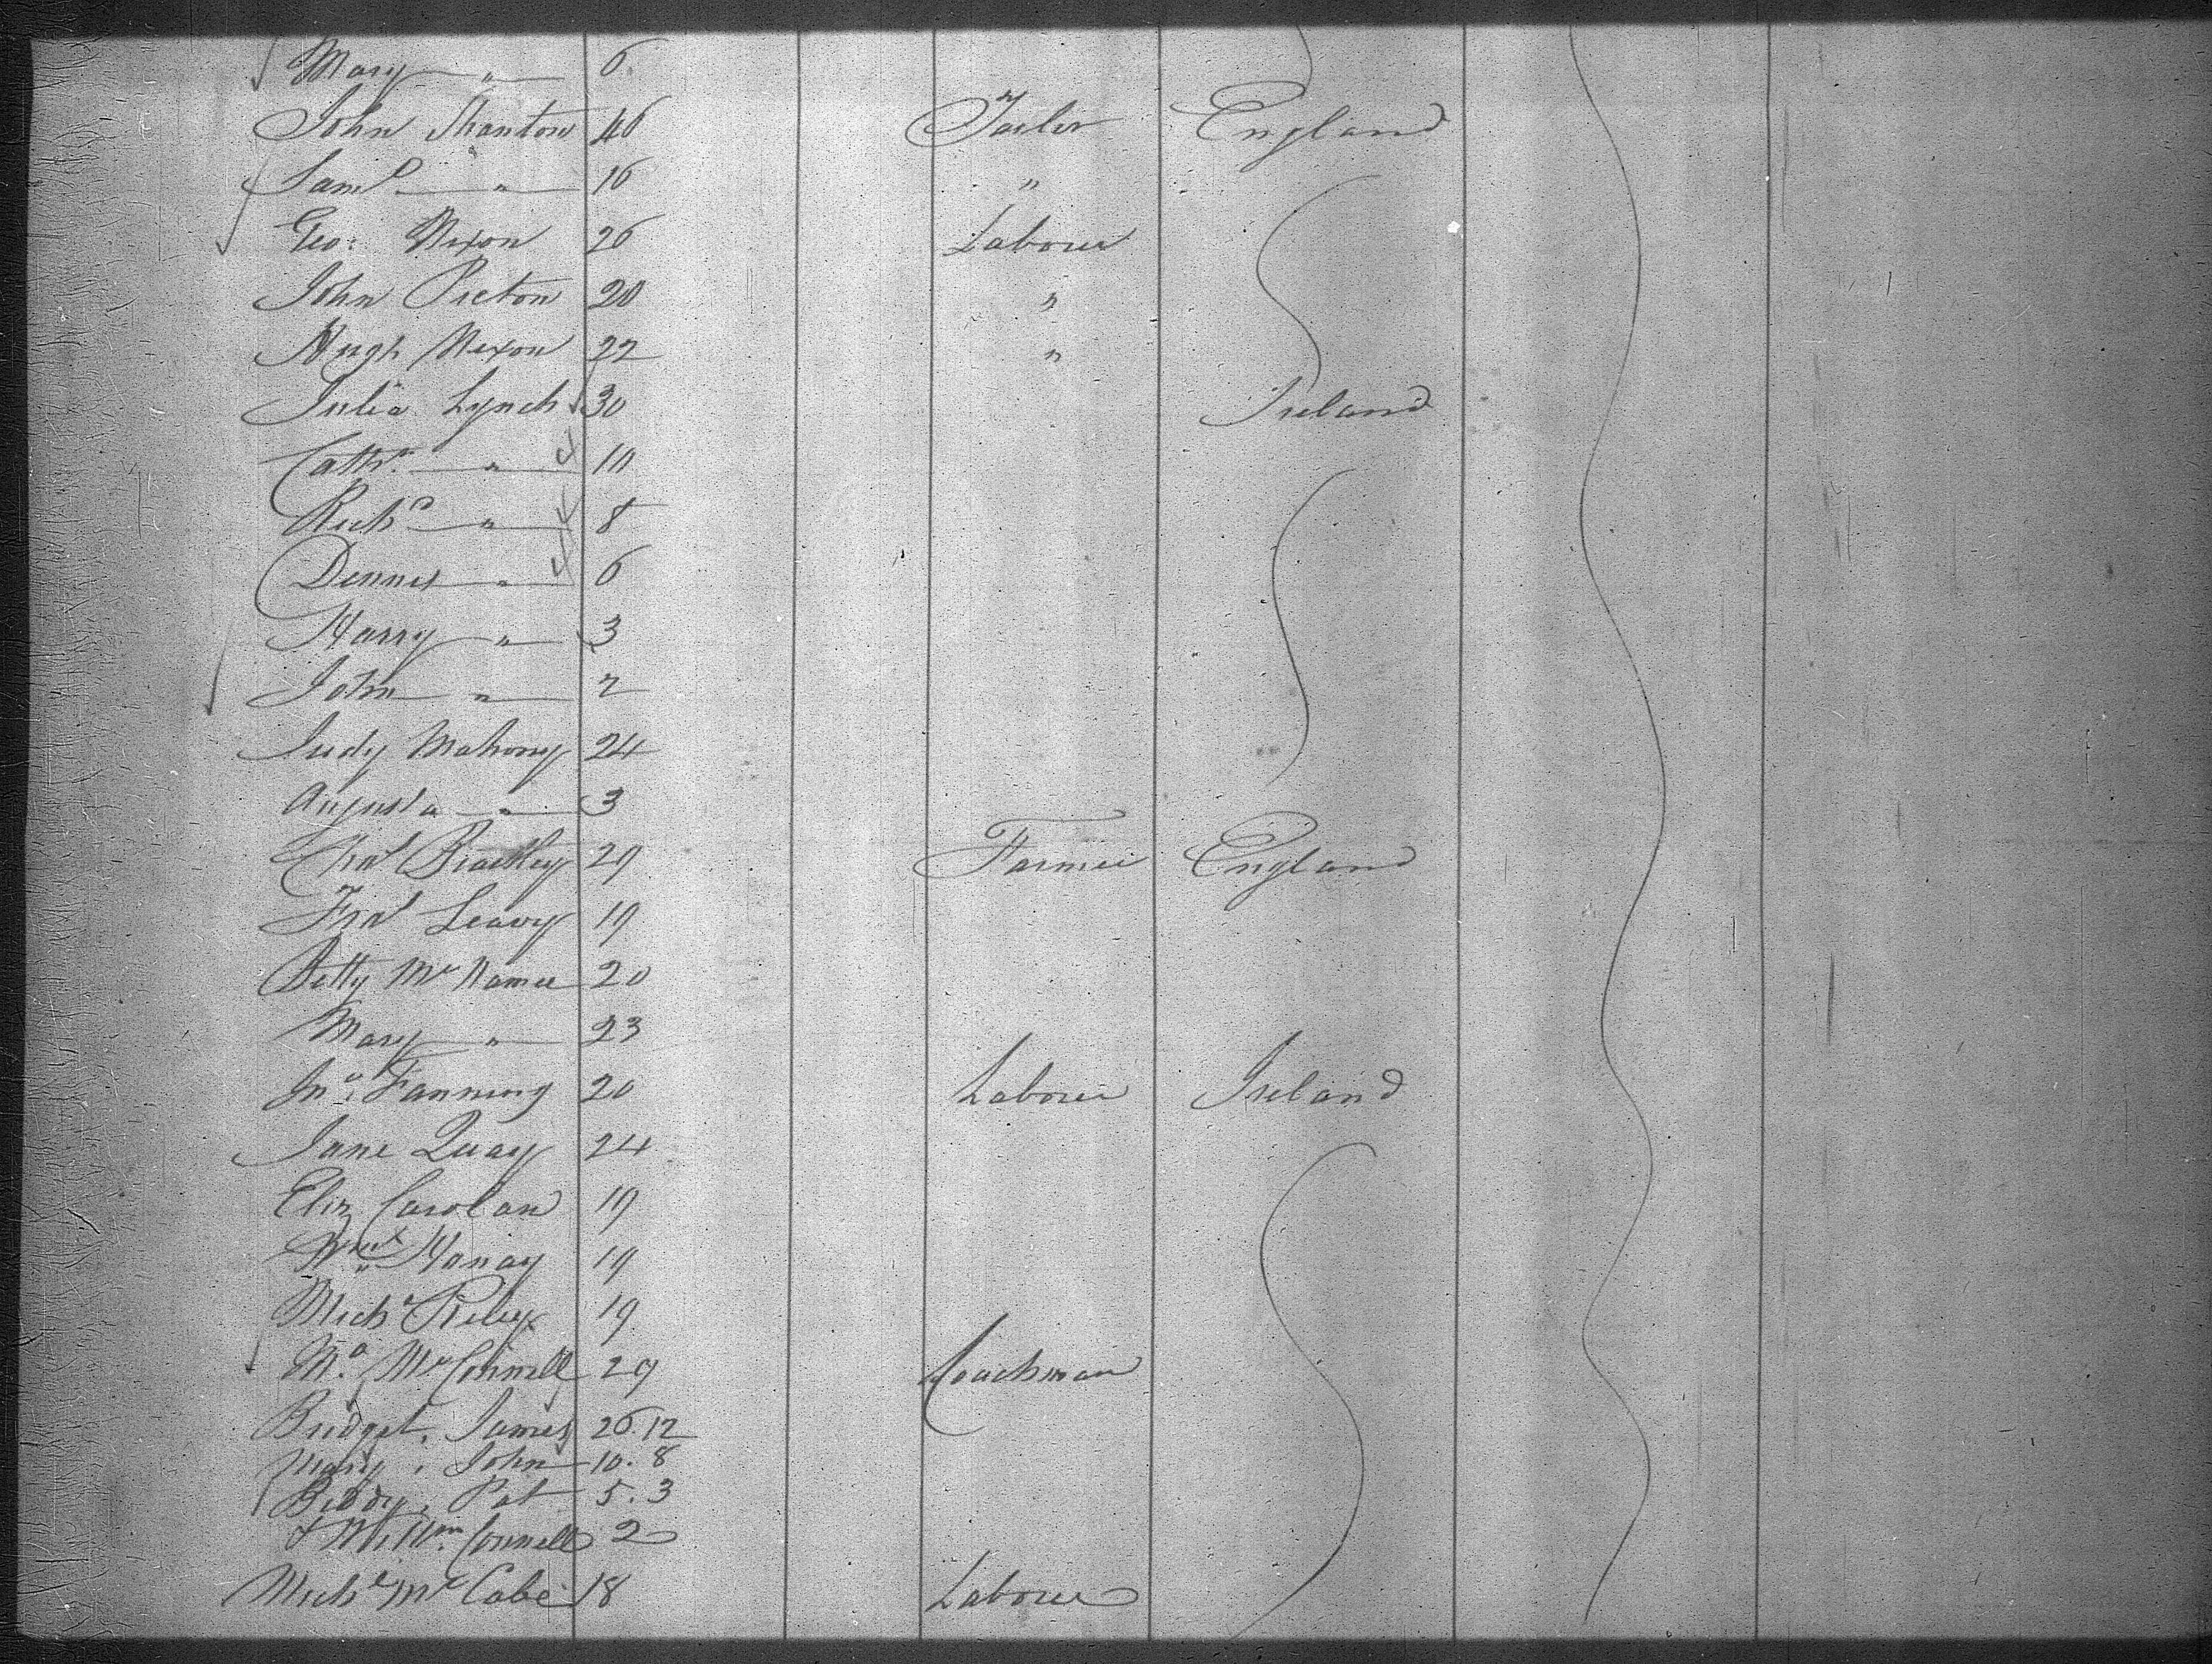 Mary " 6
John Shanton 46 Tailor England
Saml " 16 "
Geo: Nixon 26 Laborer
John Picton 20 "
Hugh Nixon 22 "
Julia Lynch 30 Ireland
Cathe " 10
Richd " 8
Dennis " 6
Harry " 3
John " 2
Judy Mahony 24
Augusta " 3
Chas Bradley 29 Farmer England
Fras Leavy 19
Betty Mc Namee 20
Mary " 23
Jno Fanning 20 Laborer Ireland
Jane Quay 24
Eliz Carolan 19
19
Michl Riley 19
Mc Connell 29 Coachman
Bridget, James 26.12
Mary, John 10.8
Biddy, Pat 5.3
& Willm Connell 2
Michl Mc Cabe 18 Laborer